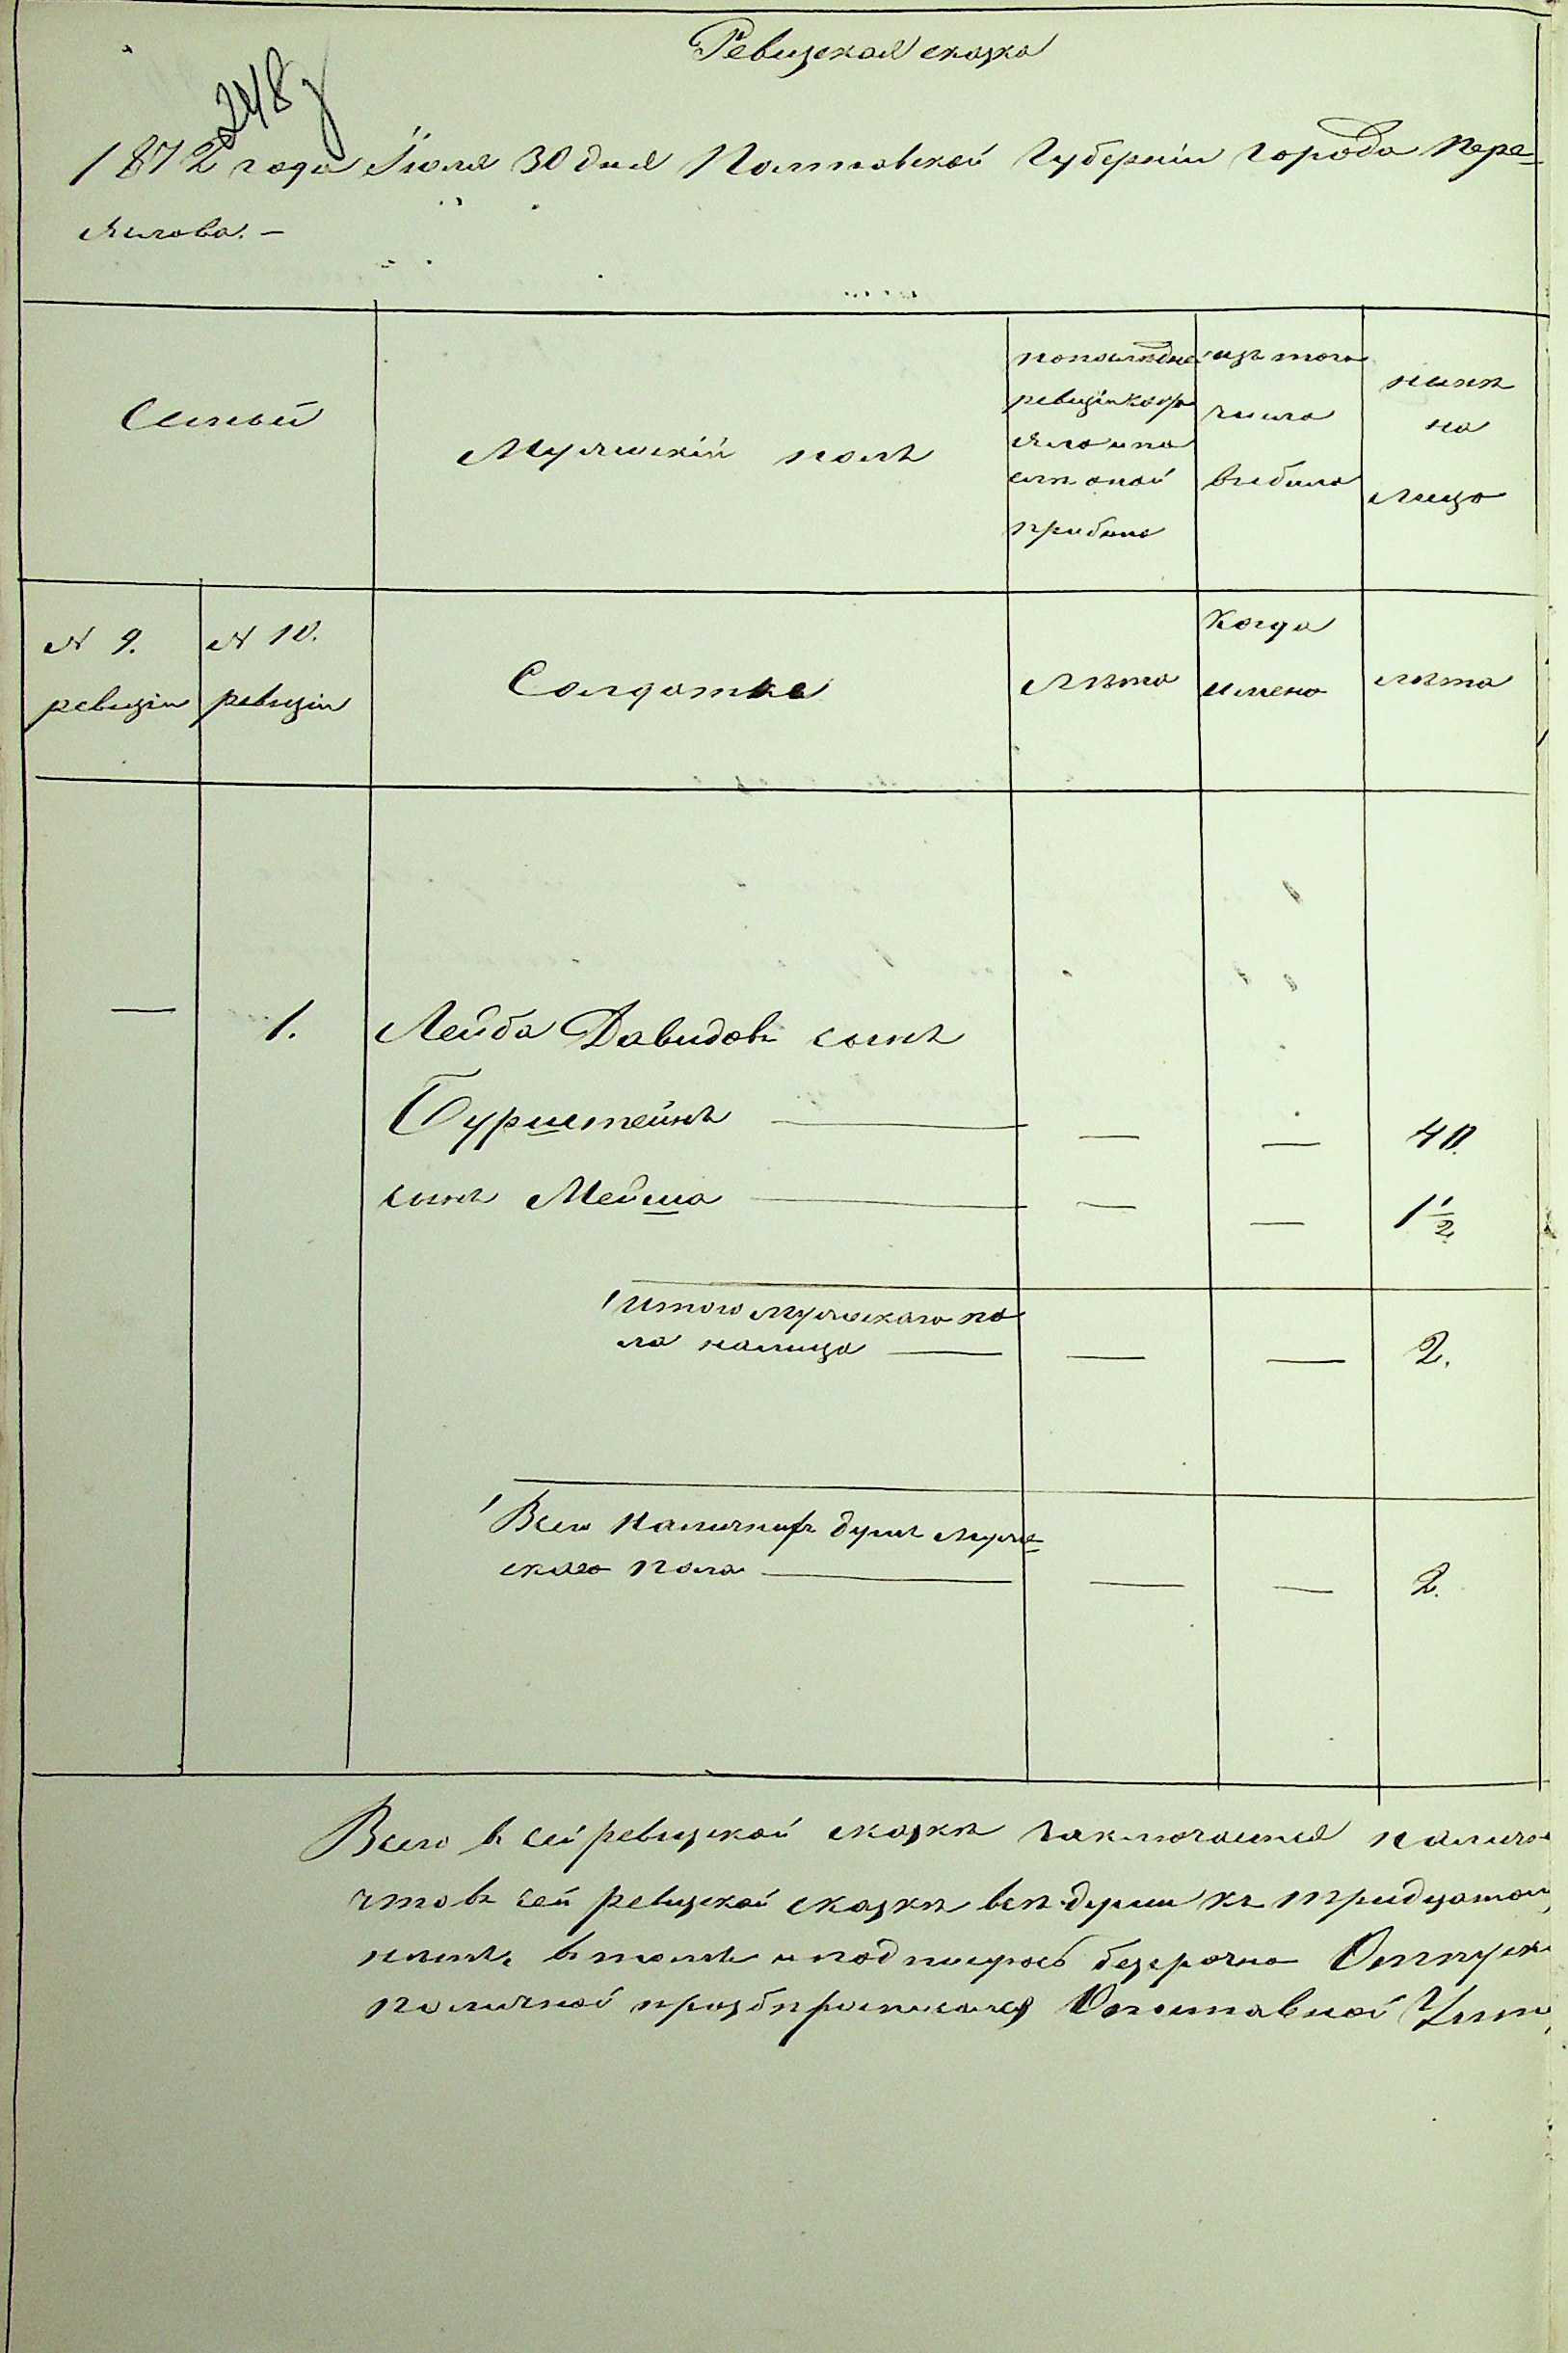 Ревизская сказка
248
1872 года Іюля 30 дня Полтавской Губерніи города Пере-
яслова. –
Семьи
Мужескій полъ
по последней
ревизіи состо
яло и по
слѣ оной
прибыло
изъ того
числа
выбыло
нынѣ
на
лицо
№ 9.
ревизіи
№ 10.
ревизіи
Солдатка
лѣта
Когда
имено
лѣта
— 1. Лейба Давидовъ сынъ
Бурштейнъ — — — 40.
сынъ Мейша — — — 1 1/2
Итого мужескаго по
ла налицо — — — 2.
Всего наличныхъ душъ муже-
скаго пола — — — 2.
Всего в сей ревизской сказкѣ заключается налич
что въ сей ревизской сказкѣ всѣ души къ тридцатом
безсрочно Отпуск
Отставной Унт